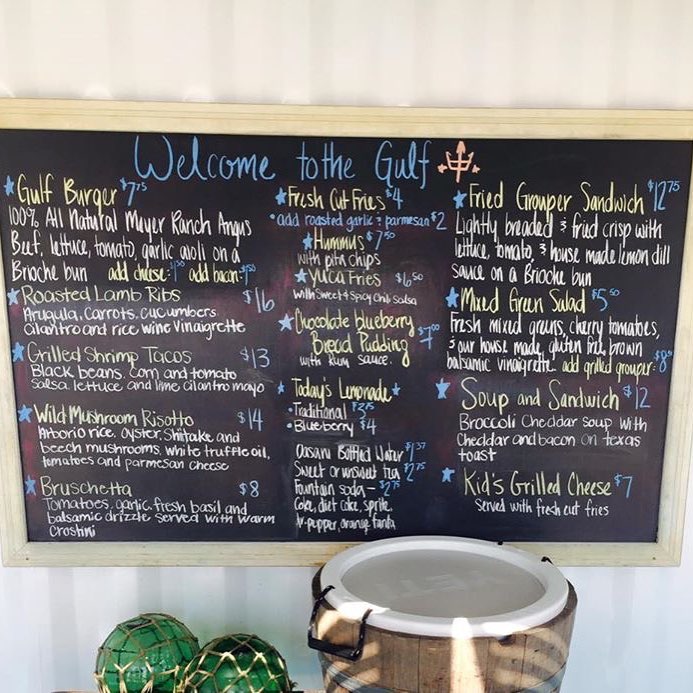 Welcome to the Gulf
Gulf Burger $7.75
100% All Natural Meyer Ranch Angus
Beef, lettuce, tomato, garlic aioli on a
Brioche bun add cheese: add bacon:
Roasted Lamb Ribs $16
Arugula, carrots, cucumbers
cilantro and rice wine vinaigrette
Grilled Shrimp Tacos $13
Black beans, corn and tomato
salsa, lettuce and lime cilantro mayo
Wild Mushroom Risotto $14
Arborio rice, oyster, shitake and
beech mushrooms, white truffle oil,
tomatoes and parmesan cheese
Bruschetta $8
Tomatoes, garlic, fresh basil and
balsamic drizzle served with warm
crostini
Fresh Cut Fries $4
• add roasted garlic & parmesan $2
Hummus $7.50
with pita chips
Yuca Fries $6.50
with Sweet & Spicy Chili Salsa
Chocolate blueberry
Bread Pudding $7.00
with Rum sauce.
Today's Lemonade
• Traditional $3.75
• Blueberry $4
Dasani Bottled Water
Sweet or unsweet tea $2.75
Fountain soda - $2.75
Coke, diet coke, sprite,
Dr. pepper, orange fanta
Fried Grouper Sandwich $12.75
Lightly breaded & fried crisp with
lettuce, tomato, & house made lemon dill
sauce on a Brioche bun
Mixed Green Salad $5.50
Fresh mixed greens, cherry tomatoes,
& our house made, gluten free, brown
balsamic vinaigrette add grilled grouper:
Soup and Sandwich $12
Broccoli Cheddar soup with
Cheddar and bacon on texas
toast
Kid's Grilled Cheese $7
Served with fresh cut fries